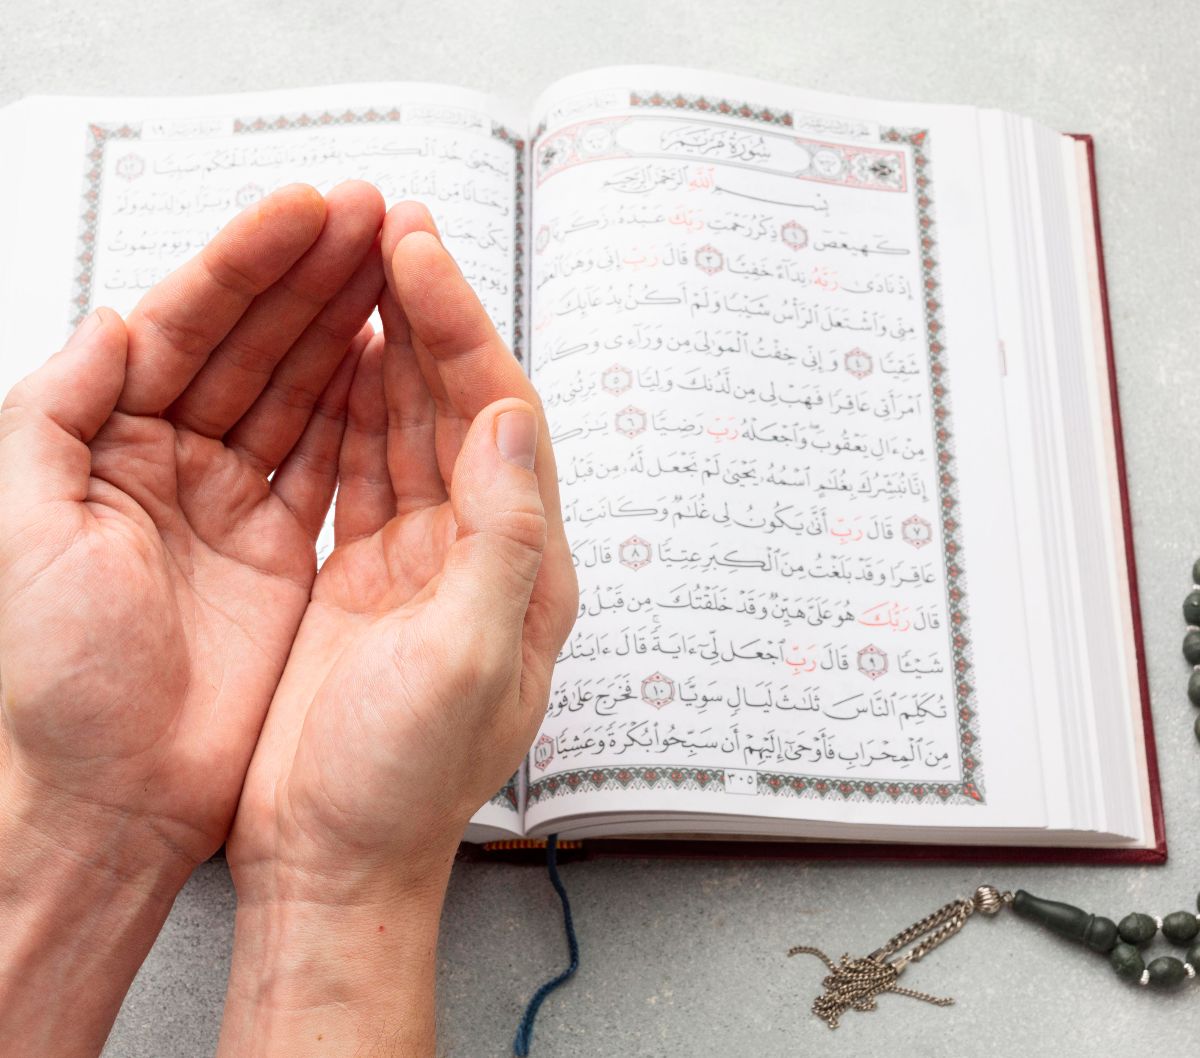 سُورَةُ مَرْيَمَ
بِسْمِ ٱللَّهِ ٱلرَّحْمَٰنِ ٱلرَّحِيمِ
كٓهيعٓصٓ ١ ذِكْرُ رَحْمَتِ رَبِّكَ عَبْدَهُۥ زَكَرِيَّا
إِذْ نَادَىٰ رَبَّهُۥ نِدَآءً خَفِيًّا ٣ قَالَ رَبِّ إِنِّى وَهَنَ ٱلْعَظْ
مِنِّى وَٱشْتَعَلَ ٱلرَّأْسُ شَيْبًا وَلَمْ أَكُنۢ بِدُعَآئِكَ رَبِّ
شَقِيًّا ٤ وَإِنِّى خِفْتُ ٱلْمَوَٰلِىَ مِن وَرَآءِى وَكَانَتِ
ٱمْرَأَتِى عَاقِرًا فَهَبْ لِى مِن لَّدُنكَ وَلِيًّا ٥ يَرِثُنِى وَيَ
مِنْ ءَالِ يَعْقُوبَ وَٱجْعَلْهُ رَبِّ رَضِيًّا ٦ يَٰزَكَ
إِنَّا نُبَشِّرُكَ بِغُلَٰمٍ ٱسْمُهُۥ يَحْيَىٰ لَمْ نَجْعَل لَّهُۥ مِن قَبْلُ
٧ قَالَ رَبِّ أَنَّىٰ يَكُونُ لِى غُلَٰمٌ وَكَانَتِ ٱمْ
عَاقِرًا وَقَدْ بَلَغْتُ مِنَ ٱلْكِبَرِ عِتِيًّا ٨ قَالَ كَ
قَالَ رَبُّكَ هُوَ عَلَىَّ هَيِّنٌ وَقَدْ خَلَقْتُكَ مِن قَبْلُ وَ
شَيْـًٔا ٩ قَالَ رَبِّ ٱجْعَل لِّىٓ ءَايَةً قَالَ ءَايَتُكَ
تُكَلِّمَ ٱلنَّاسَ ثَلَٰثَ لَيَالٍ سَوِيًّا ١٠ فَخَرَجَ عَلَىٰ قَوْمِ
مِنَ ٱلْمِحْرَابِ فَأَوْحَىٰٓ إِلَيْهِمْ أَن سَبِّحُوا۟ بُكْرَةً وَعَشِيًّا ١١
٣٠٥
سُورَةُ مَرْيَمَ ١٩
يَٰيَحْيَىٰ خُذِ ٱلْكِتَٰبَ بِقُوَّةٍ وَءَاتَيْنَٰهُ ٱلْحُكْمَ صَبِيًّا ١٢
وَحَنَانًا مِّن لَّدُنَّا وَزَكَوٰةً ١٣ وَبَرًّۢا بِوَٰلِدَيْهِ وَلَمْ
يَكُن جَبَّارًا وَيَوْمَ يَمُوتُ
وَيَوْمَ